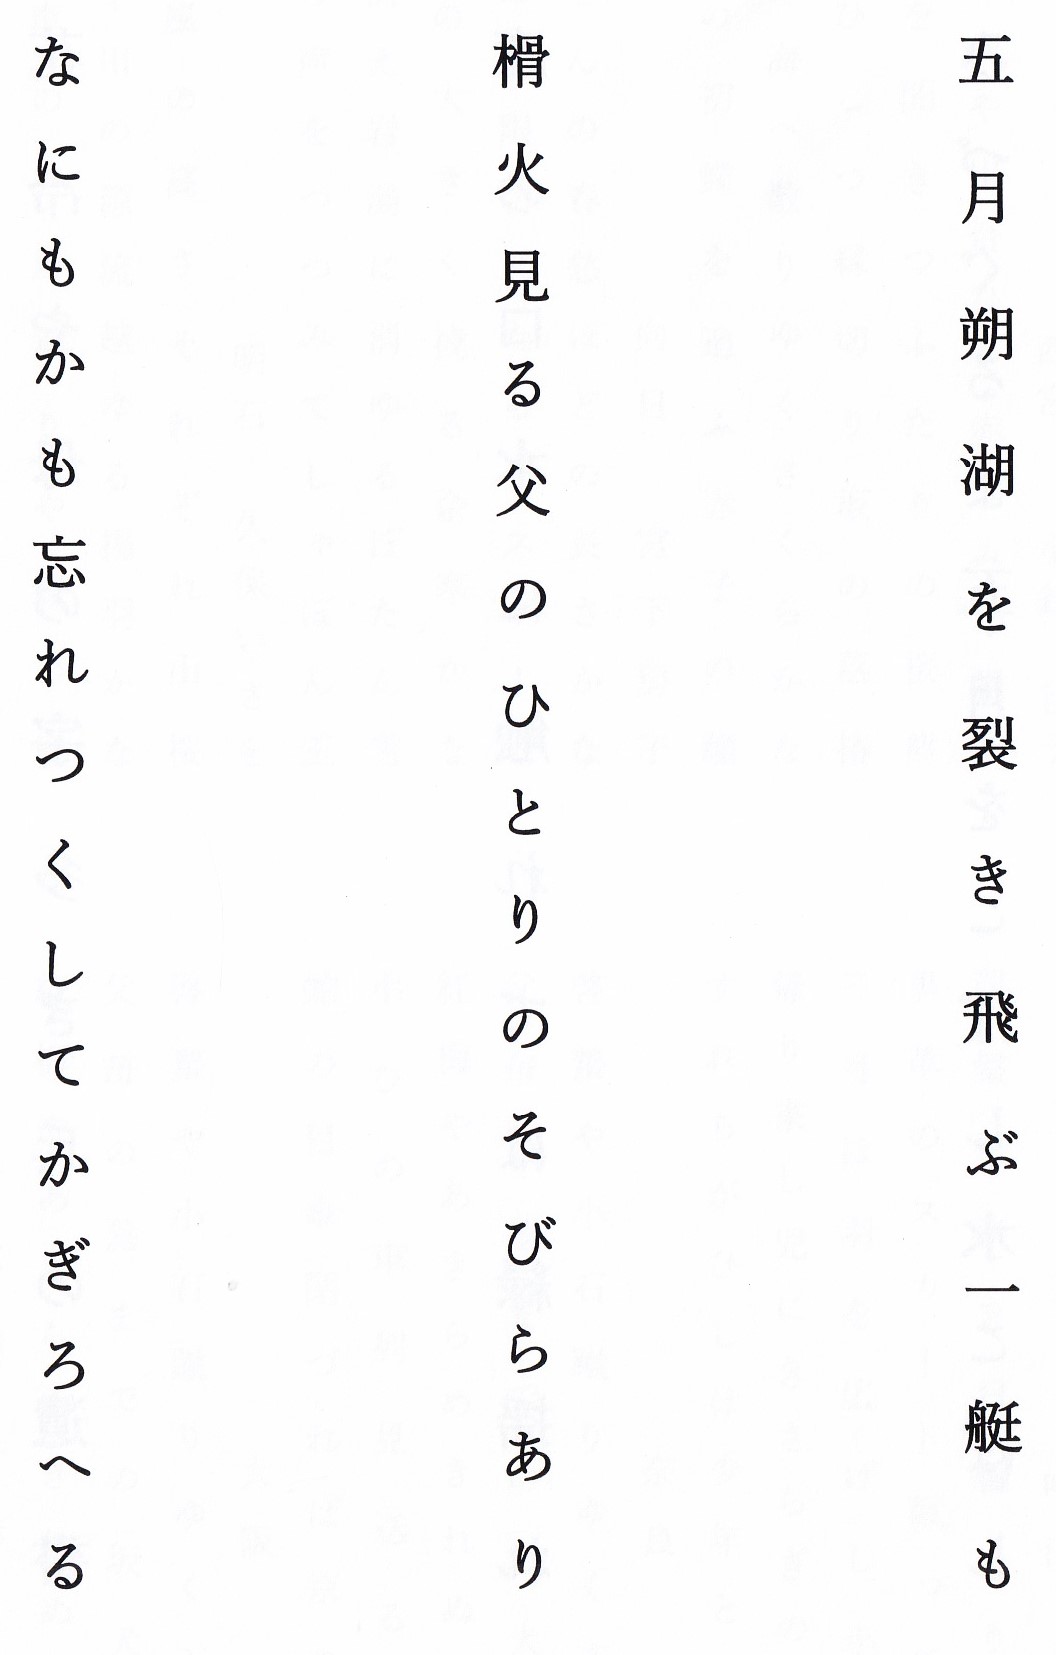 五月朔湖を裂き飛ぶ一艇も
榾火見る父のひとりのそびらあり
なにもかも忘れつくしてかぎろへる